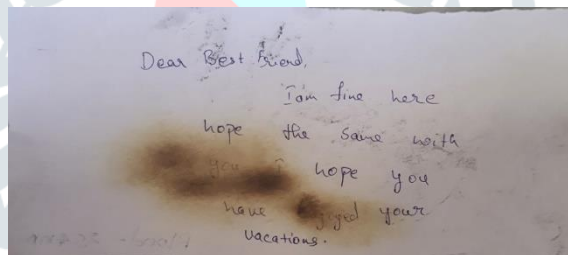 Dear Best friend,
I am fine here
hope the same with
you I hope you
have your
vacations.